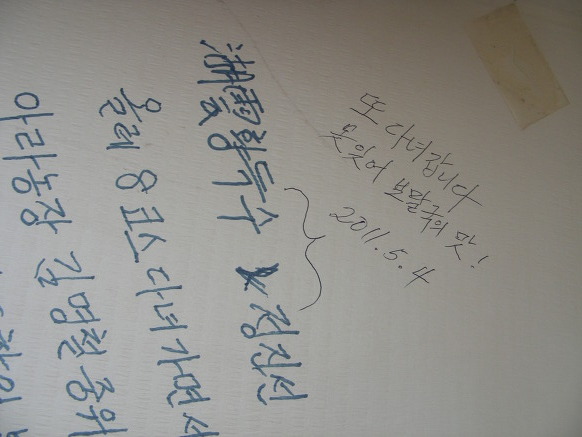 또 다녀갑니다
못잊어 보말국의 맛!
2011.5.4
황두수 정진선
올레 8 코스 다녀가면서
아라농장 김영철